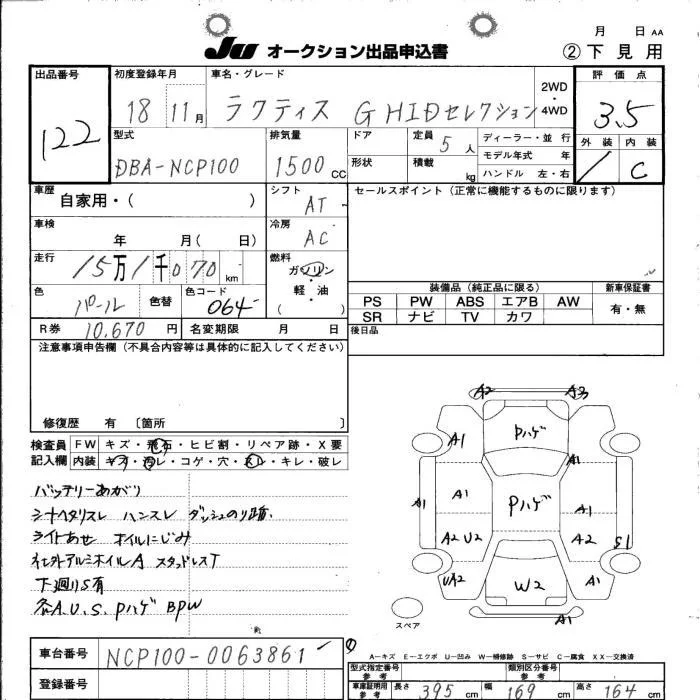 月 日 AA
JU オークション出品申込書 ② 下見用
出品番号 122
初度登録年月 18 11月
車名・グレード ラクティス G HIDセレクション
2WD・4WD
評価点 3.5
型式 DBA-NCP100
排気量 1500 CC
ドア
形状
定員 5人
積載 kg
ディーラー・並行
モデル年式 年
ハンドル 左・右
外装 / 内装 C
車歴 自家用・( )
シフト AT
セールスポイント(正常に機能するものに限ります)
車検 年 月( 日)
冷房 AC
走行 15万1千070 km
燃料 ガソリン・軽・油 ( )
色 パール 色替
色コード 064
装備品(純正品に限る) 新車保証書
PS PW ABS エアB AW 有・無
SR ナビ TV カワ
R券 10,670円 名変期限 月 日
後日品
注意事項申告欄(不具合内容等は具体的に記入してください)
修復歴 有 〔箇所 〕
検査員記入欄
FW キズ・飛石・ヒビ割・リペア跡・X要
内装 キズ・汚レ・コゲ・穴・スレ・キレ・破レ
バッテリーあがり
シートヘタリスレ ハンスレ ダッシュのり跡.
ライトあせ オイルにじみ
社外アルミホイルA スタッドレスT
下廻りS有
各A.U.S.Pハゲ BPW
A2 A3
A1 Pハゲ A1
A1 A1 Pハゲ A1
A2 U2 A2 S1
UA2 W2 A1
A1
スペア
A-キズ E-エクボ U-凹み W-補修跡 S-サビ C-腐食 XX-交換済
車台番号 NCP100-0063861
登録番号
型式指定番号 参考 類別区分番号 参考
車庫証明用 参考 長さ 395 cm 幅 169 cm 高さ 164 cm